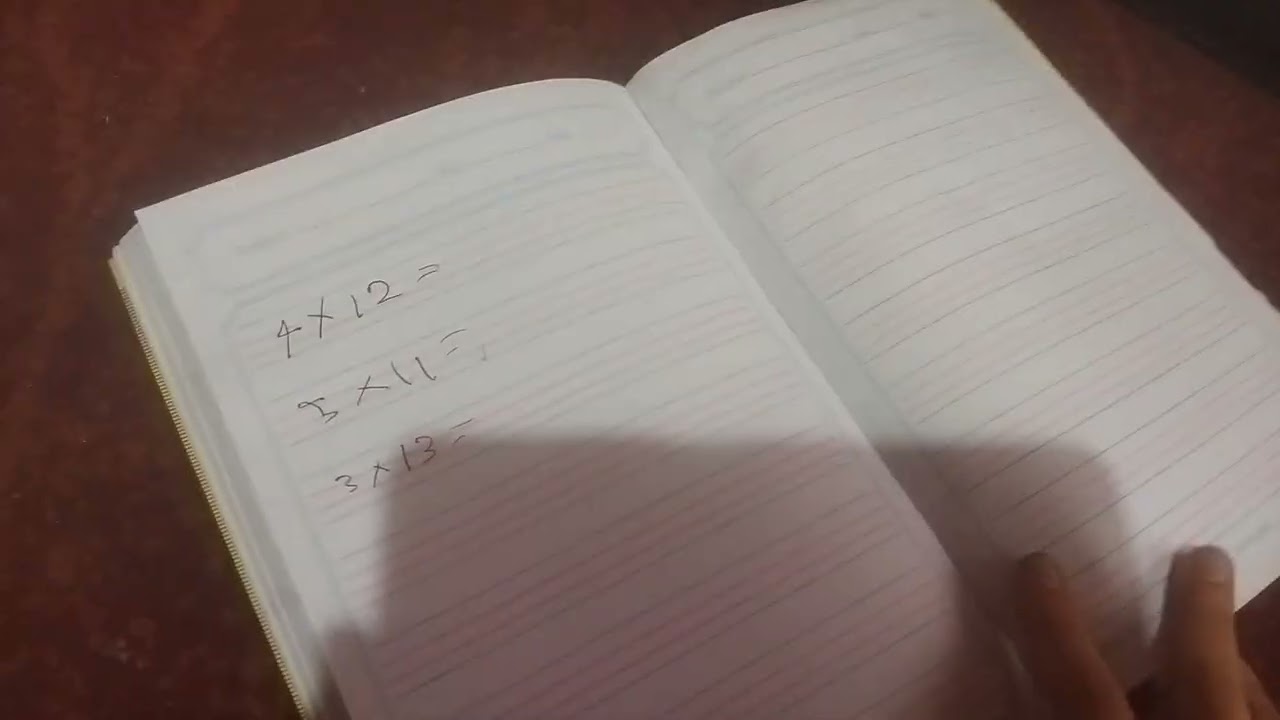 4 × 12 =
5 × 11 =
3 × 13 =